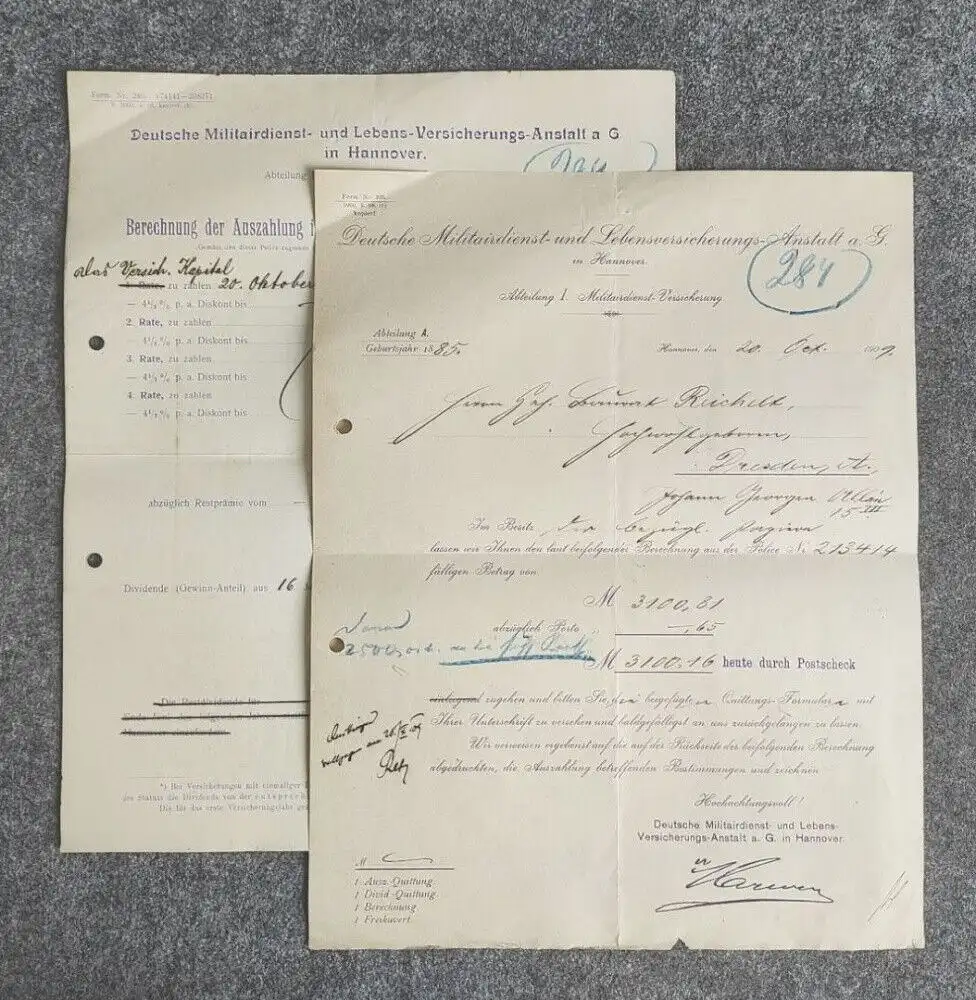 Form. Nr. 
Deutsche Militairdienst- und Lebens-Versicherungs-Anstalt a G.
in Hannover.
284
Abteilung
Berechnung der Auszahlung
das Versich. Kapital
1. Rate, zu zahlen 20. Oktober
— 4½ % p. a. Diskont bis
2. Rate, zu zahlen
— 4½ % p. a. Diskont bis
3. Rate, zu zahlen
— 4½ % p. a. Diskont bis
4. Rate, zu zahlen
— 4½ % p. a. Diskont bis
abzüglich Restprämie vom —
Dividende (Gewinn-Anteil) aus 16
*) Bei Versicherungen mit einmaliger
des Statuts die Dividende von der
Die für das erste Versicherungsjahr
Form. Nr.
kopiert
Deutsche Militairdienst- und Lebensversicherungs-Anstalt a. G.
in Hannover.
284
Abteilung I. Militairdienst-Versicherung.
Abteilung A.
Geburtsjahr 1885.
Hannover, den 20. Oct. 1909.
Herrn Geh. Baurat Reichelt,
Hochwohlgeboren,
Dresden, A.,
Johann Georgen Allee
15 III
Im Besitz der bezügl. Papiere
lassen wir Ihnen den laut beifolgender Berechnung aus der Police № 213414
fälligen Betrag von
M 3100,81
abzüglich Porto „ —,65
M 3100.16 heute durch Postscheck
zugehen und bitten Sie, die beigefügten Quittungs-Formulare mit
Ihrer Unterschrift zu versehen und baldgefälligst an uns zurückgelangen zu lassen.
Wir verweisen ergebenst auf die auf der Rückseite der beifolgenden Berechnung
abgedruckten, die Auszahlung betreffenden Bestimmungen und zeichnen
Hochachtungsvoll!
Deutsche Militairdienst- und Lebens-
Versicherungs-Anstalt a. G. in Hannover.
M
1 Ausz.-Quittung.
1 Divid.-Quittung.
1 Berechnung.
1 Freikuvert.